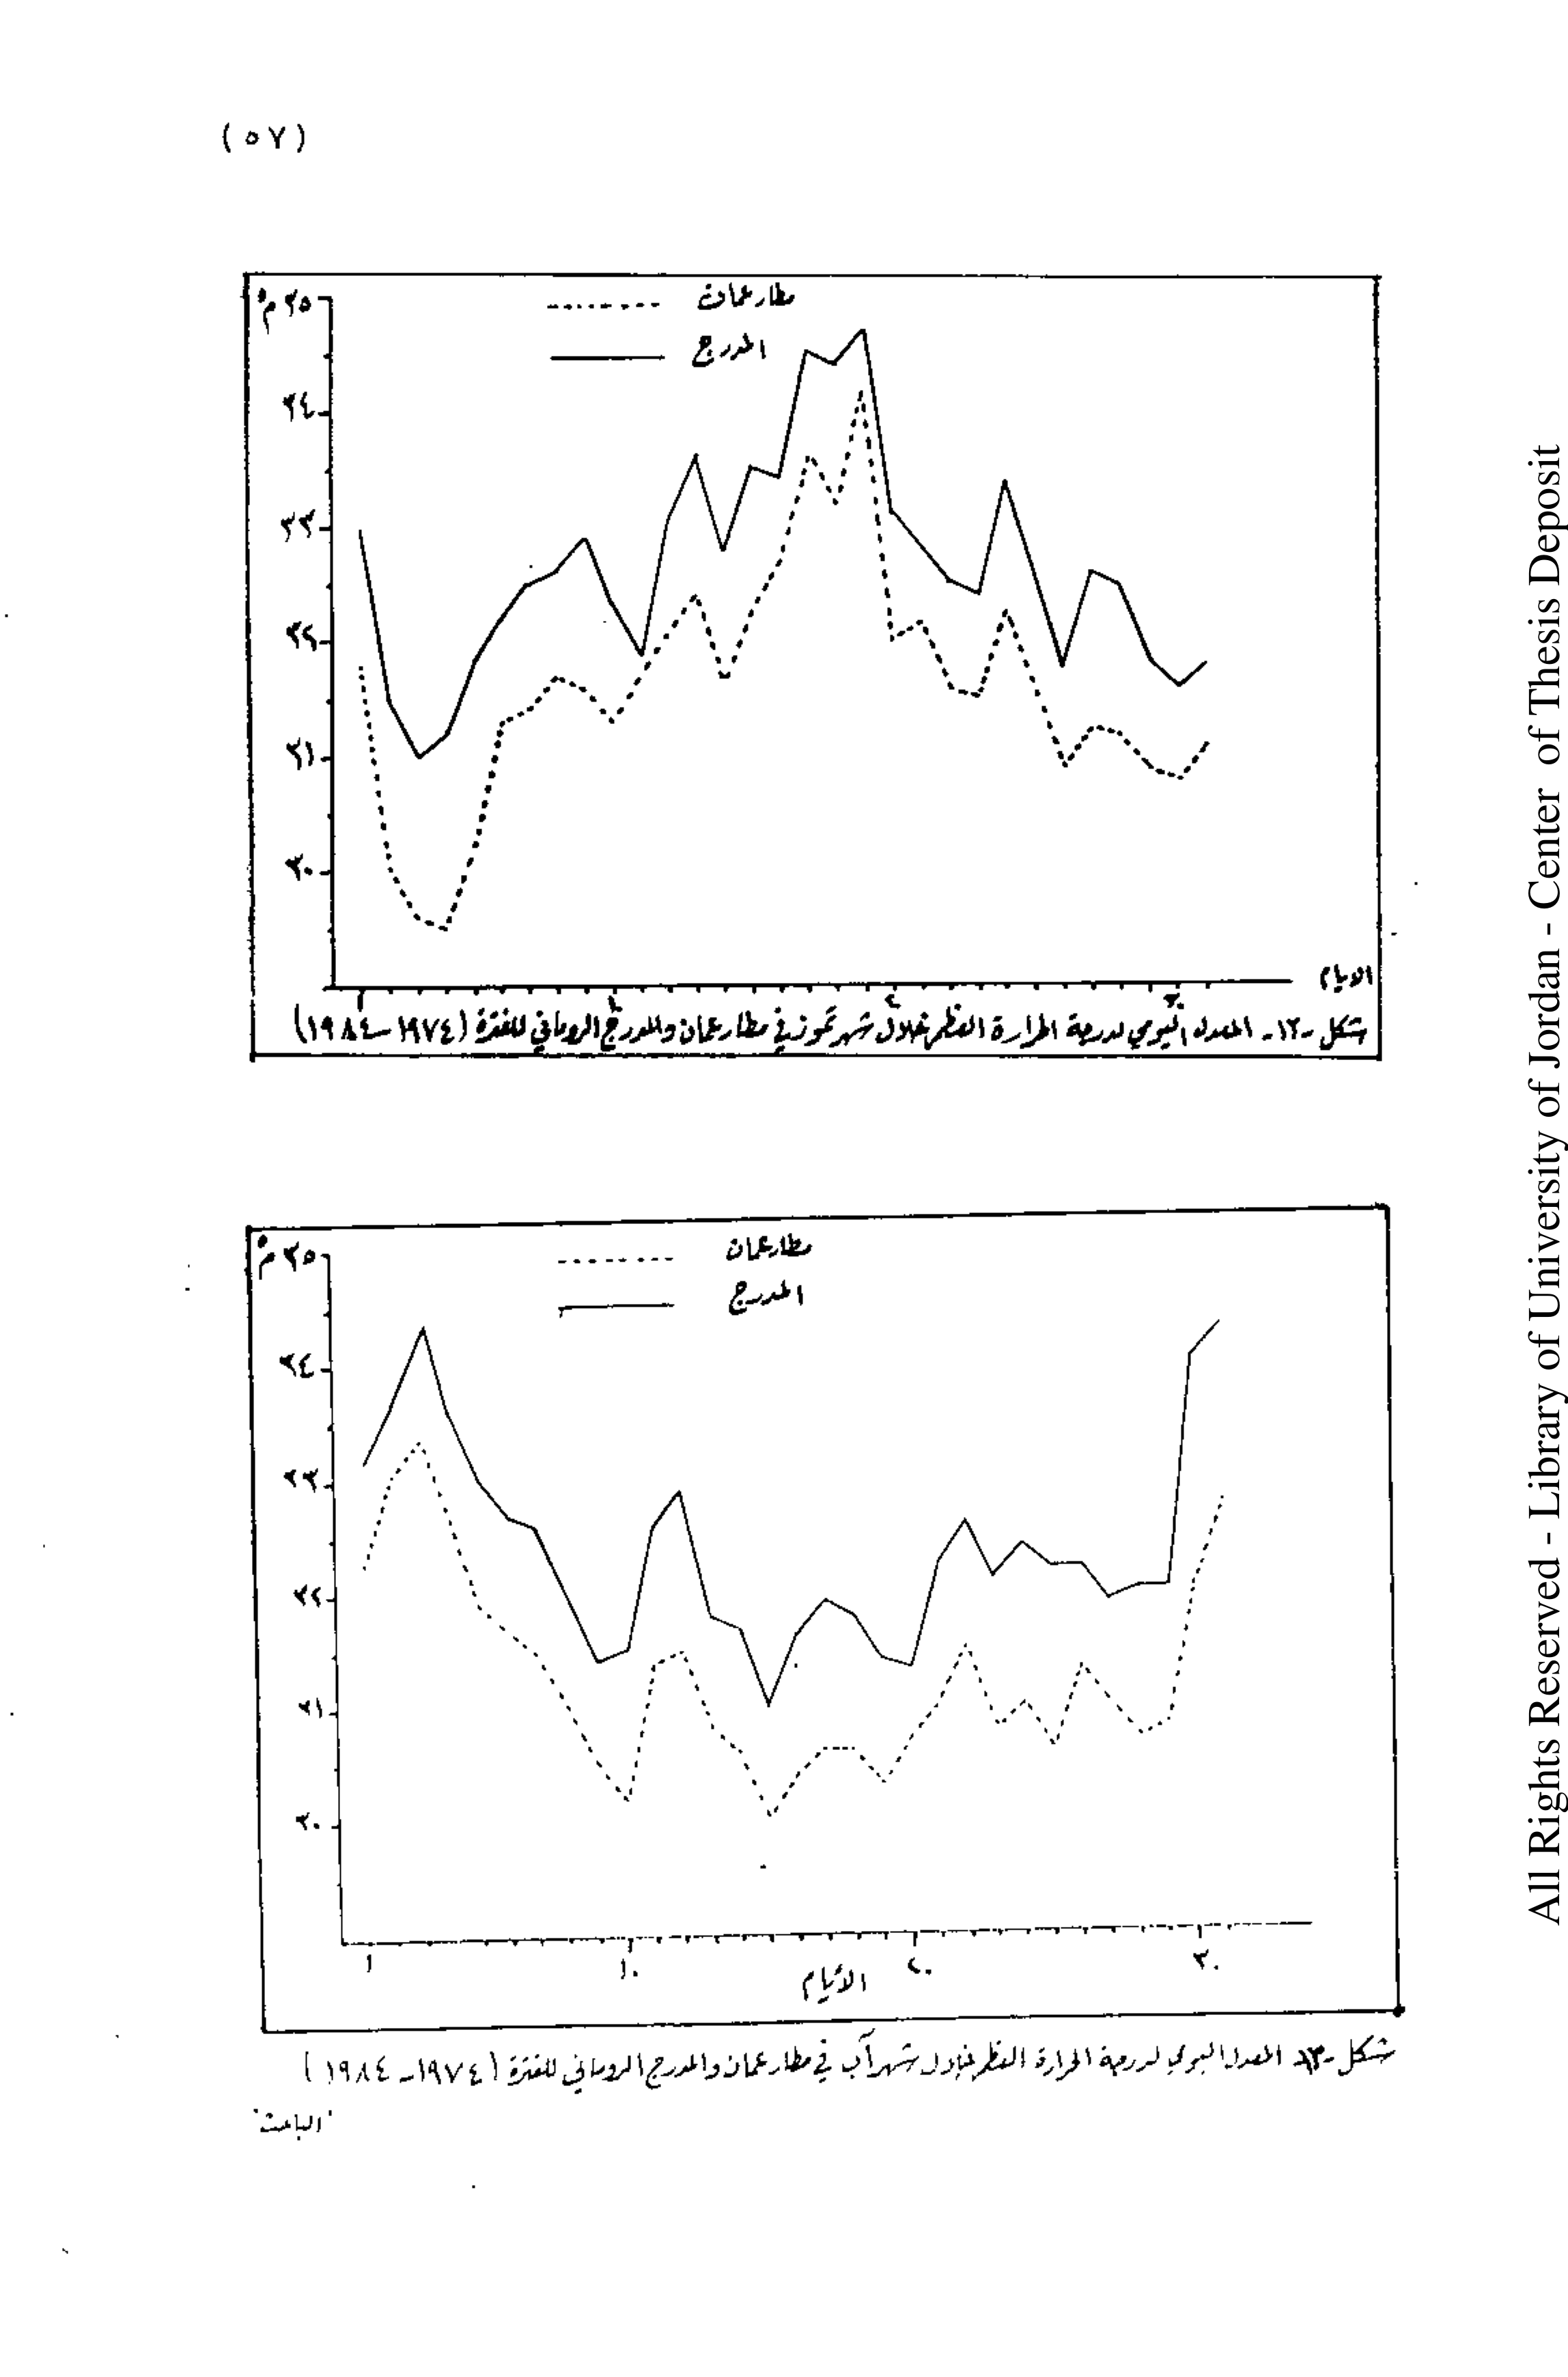 (٥٧)
مطار عمان
المدرج
٣٥ م°
٣٤
٣٣
٣٢
٣١
٣٠
الايام
شكل -١٢- المعدل اليومي لدرجة الحرارة العظمى خلال شهر تموز في مطار عمان والمدرج الروماني للفترة (١٩٧٤-١٩٨٤)
مطار عمان
المدرج
٣٥ م°
٣٤
٣٣
٣٢
٣١
٣٠
١ ١٠ ٢٠ ٣٠
الأيام
شكل -١٣- المعدل اليومي لدرجة الحرارة العظمى خلال شهر آب في مطار عمان والمدرج الروماني للفترة (١٩٧٤-١٩٨٤)
"الباحث"
All Rights Reserved - Library of University of Jordan - Center of Thesis Deposit